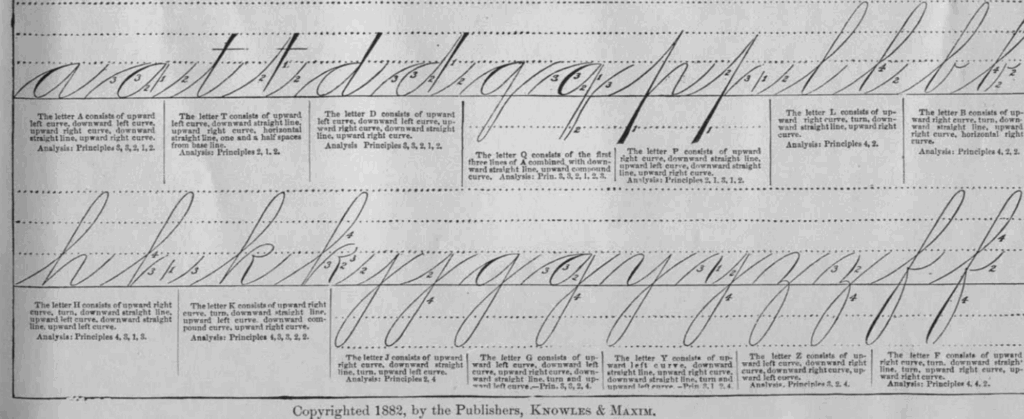 a a t t d d q q p p l l b b
The letter A consists of upward
left curve, downward left curve,
upward right curve, downward
straight line, upward right curve.
Analysis: Principles 3, 3, 2, 1, 2.
The letter T consists of upward
left curve, downward straight line,
upward right curve, horizontal
straight line, one and a half spaces
from base line.
Analysis: Principles 2, 1, 2.
The letter D consists of upward
left curve, downward left curve, up-
ward right curve, downward straight
line, upward right curve.
Analysis Principles 3, 3, 2, 1, 2.
The letter Q consists of the first
three lines of A combined with down-
ward straight line, upward compound
curve. Analysis: Prin. 3, 3, 2, 1, 2, 3.
The letter P consists of upward
right curve, downward straight line,
upward left curve, downward straight
line, upward right curve.
Analysis: Principles 2, 1, 3, 1, 2.
The letter L consists of up-
ward right curve, turn, down-
ward straight line, upward right
curve.
Analysis: Principles 4, 2.
The letter B consists of up-
ward right curve, turn, down-
ward straight line, upward right
curve, horizontal right
curve.
Analysis: Principles 4, 2, 2.
h h k k j j g g y y z z f f
The letter H consists of upward right
curve, turn, downward straight line,
upward left curve, downward straight
line, upward left curve.
Analysis: Principles 4, 3, 1, 3.
The letter K consists of upward right
curve, turn, downward straight line,
upward left curve, downward com-
pound curve, upward right curve.
Analysis: Principles 4, 3, 3, 2, 2.
The letter J consists of upward
right curve, downward straight
line, turn, upward left curve.
Analysis: Principles 2, 4
The letter G consists of up-
ward left curve, downward left
curve, upward right curve, down-
ward straight line, turn and up-
ward left curve.—Prin. 3, 3, 2, 4.
The letter Y consists of up-
ward left curve, downward
straight line, upward right curve,
downward straight line, turn and
upward left curve.—Prin. 3, 1, 2, 4.
The letter Z consists of upward
left curve, downward straight
line, downward right curve, up-
ward left curve.
Analysis, Principles 3, 2, 4.
The letter F consists of upward
right curve, turn, downward straight
line, turn, upward right curve, up-
ward right curve.
Analysis: Principles 4, 4, 2.
Copyrighted 1882, by the Publishers, KNOWLES & MAXIM.